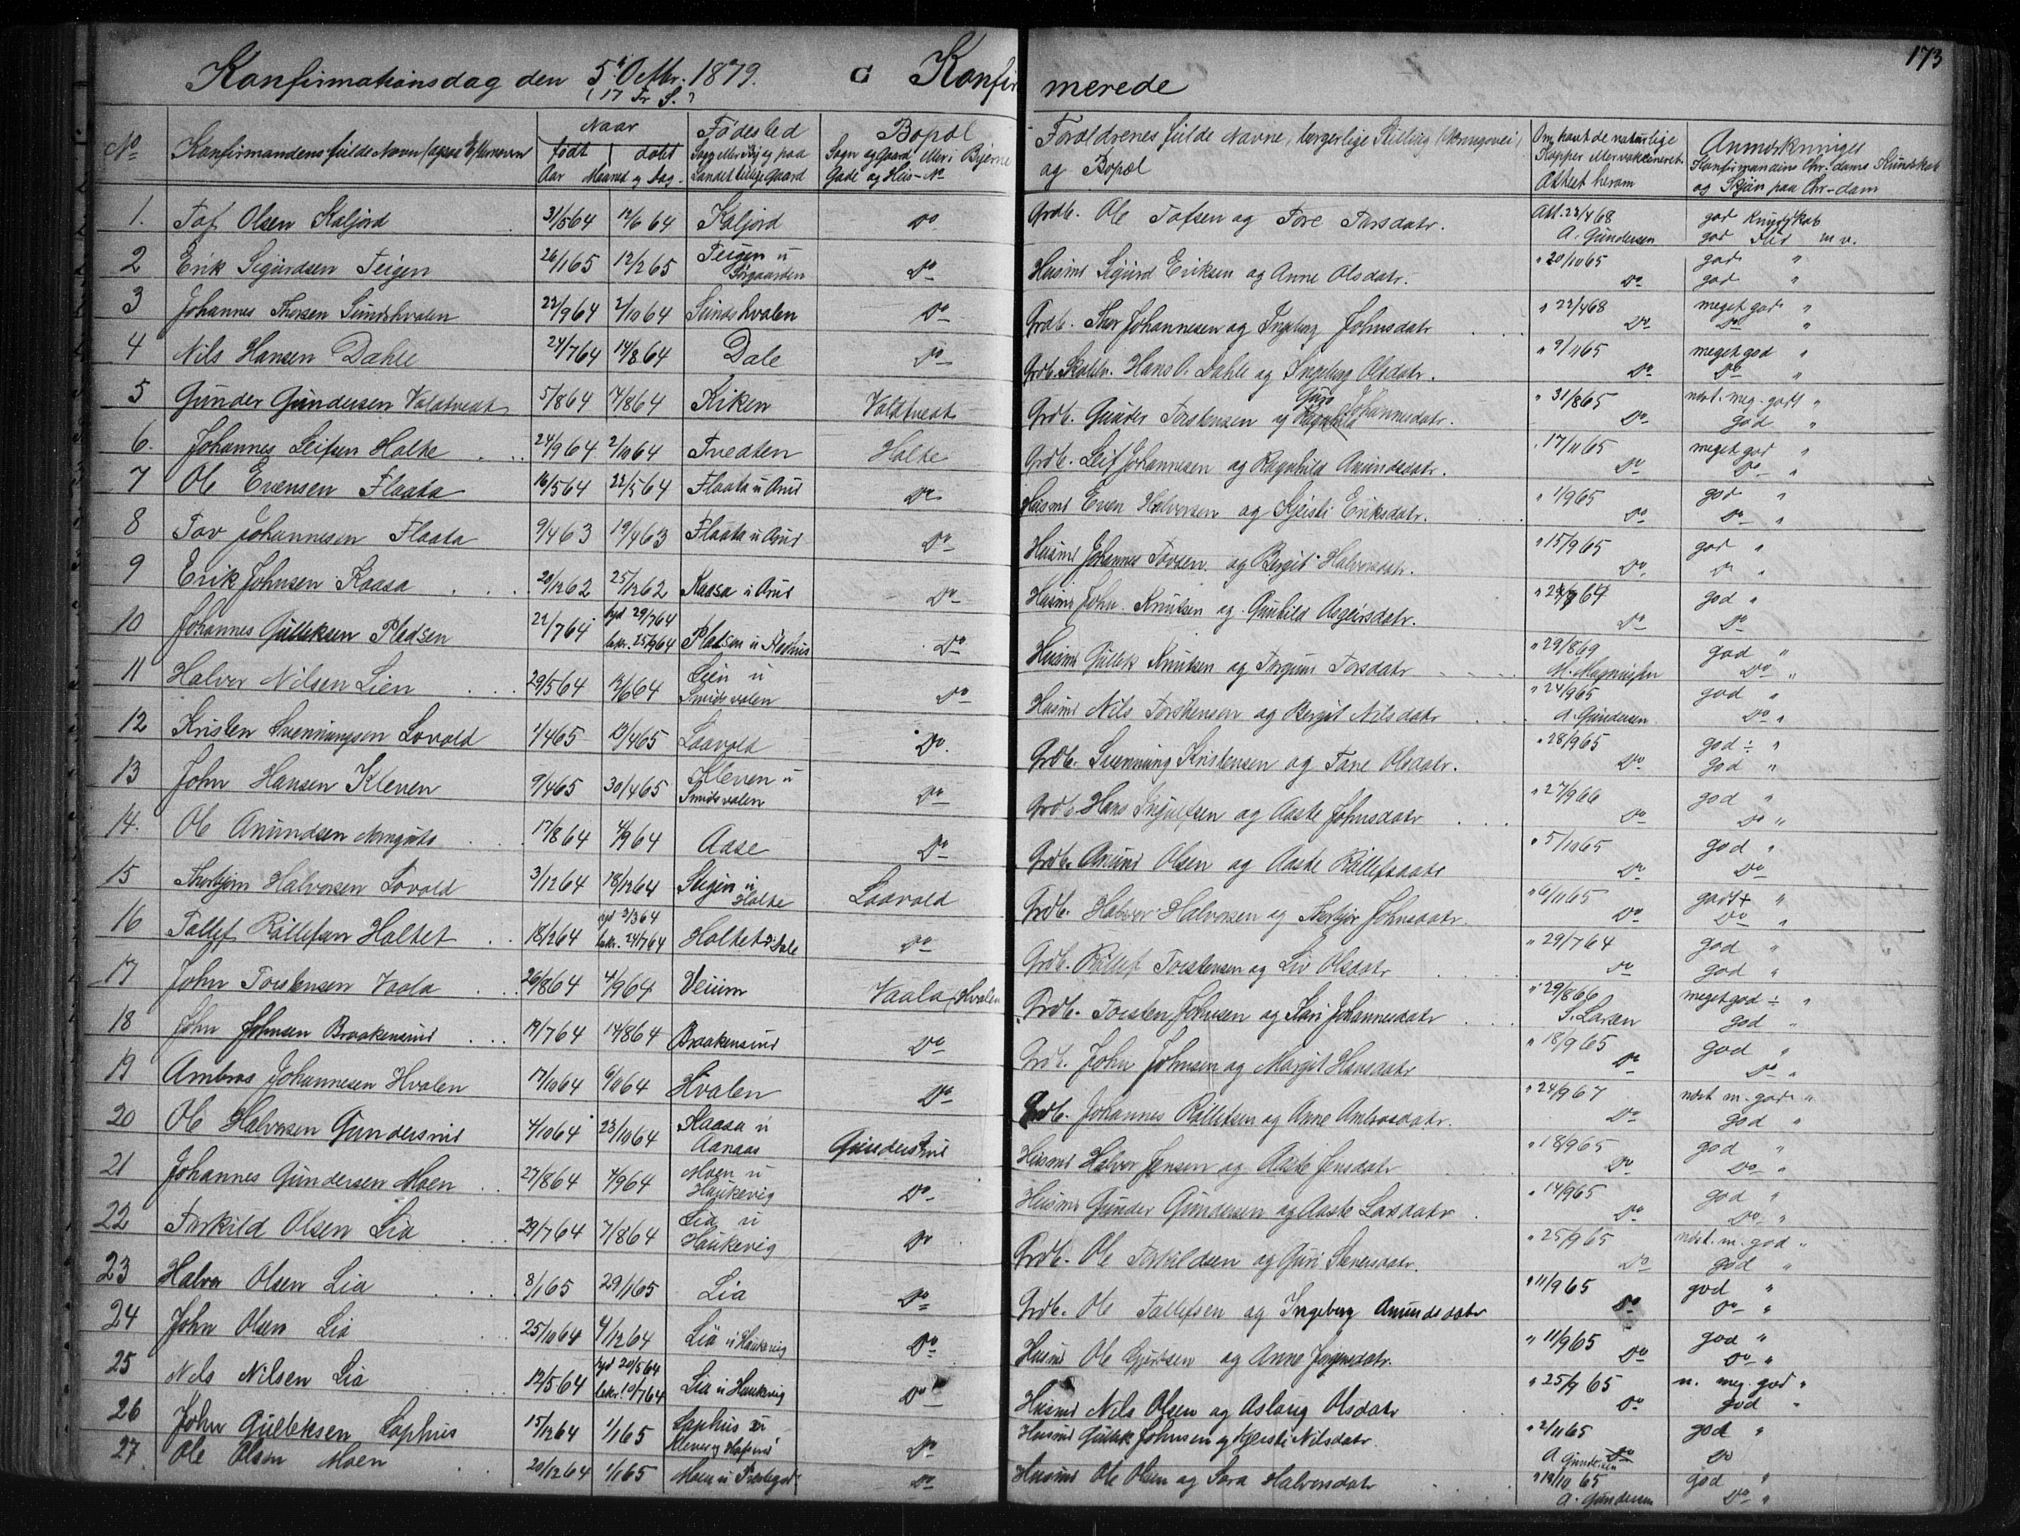 173
Konfirmationsdag den 5te Octbr. 1879. C Konfirmerede
(17 Tr S.)
No Konfirmandens fulde Navn Naar født Aar Maaned og Dag døbt Fødested Bopæl Sogn og Gaard eller i Byerne Gade og Hus-No Forældrenes fulde Navne, borgerlige Stilling og Bopæl Om havt de naturlige Kopper eller vakcineret. Attest herom Anmærkninger Konfirmandens Chr-doms Kundskab og Skjøn paa Chr-dom
1. Taf Olsen Kaljord 31/5 64 12/6 64 Kaljord Do Grdb. Ole Tafsen og Tore Tarsdatr. Att. 22/4 68 A. Gundersen god Kundskab god Flid m. v.
2 Erik Sigurdsen Teigen 26/1 65 12/2 65 Teigen u Sørgaarden Do Husmd Sigurd Eriksen og Anne Olsdatr. " 20/10 65 Do god " god "
3 Johannes Thorsen Sundshvalen 22/9 64 2/10 64 Sundshvalen Do Grdb. Thor Johannesen og Ingeborg Johnsdatr " 22/4 68 Do meget god " Do "
4 Nils Hansen Dahle 24/7 64 14/8 64 Dale Do Grdb. Skoleh. Hans O. Dahle og Ingeborg Olsdatr. " 9/11 65 Do meget god " Do "
5 Gunder Gundersen Valatveat 5/8 64 7/8 64 Kiken Valdtveat Grdb. Gunder Torstensen og Guro Johannesdatr. " 31/8 65 Do næst. meg. godt " god "
6. Johannes Leifsen Holte 24/9 64 2/10 64 Tvedten Holte Grdb. Leif Johannesen og Ragnhild Amundsdatr. " 17/11 65 Do meget god " Do "
7 Ole Evensen Flaata 16/5 64 22/5 64 Flaata u Arud Do Husmd Even Halvorsen og Kjersti Eriksdatr. " 1/9 65 Do god " Do "
8 Tov Johannesen Flaata 9/4 63 19/4 63 Flaata u Arud Do Husmd Johannes Tovsen og Bergit Halvorsdatr. " 15/9 65 Do god " Do "
9 Erik Johnsen Kaasa 20/12 62 25/12 62 Kaasa u Arud Do Husmd John Knutsen og Gunhild Asgeirsdatr. Do god " Do
10 Johannes Gulleksen Pladsen 22/7 64 hjd 29/7 64 bekr. 25/9 64 Pladsen u Flodhus Do Husmd Gullek Knutsen og Torgunn Torsdatr " 29/8 69 god " Do "
11 Halvor Nilsen Lien 29/5 64 12/6 64 Lien u Smidsvalen Do Husmd Nils Torstensen og Bergit Nilsdatr " 24/9 65 A. Gundersen god " Do "
12 Kristen Svenningsen Lovold 1/4 65 13/4 65 Laavold Do. Grdb. Svenning Kristensen og Tone Olsdatr. " 28/9 65 Do god ÷ " god "
13 John Hansen Kleven 9/4 65 30/4 65 Kleven u Smidsvalen Do Grdb Hans Ingulfsen og Aaste Johnsdatr " 27/9 66 Do god " Do "
14. Ole Anundsen 17/8 64 4/9 64 Aase Do Grdb. Anund Olsen og Aaste Rollefsdatr " 5/10 65 Do god " Do
15 Thorbjørn Halvorsen Lovold 3/12 64 18/12 64 Stigen u Holte Laavold Grdb. Halvor Halvorsen og Thorbjør Johnsdatr. " 6/11 65 Do god + " Do "
16 Tallef Rollefsen Holtet 18/2 64 hjd 3/3 64 bekr. 24/7 64 Holtet u Dale Do Grdb. Rollef Torstensen og Liv Olsdatr " 29/7 64 Do god " god "
17 John Torstensen Vaala 26/8 64 4/9 64 Veium Vaala (Hvalen Grdb. Torsten Johnsen og Kari Johannesdatr " 29/8 66 S. Larsen meget god ÷ " god "
18 John Johnsen Braakensund 19/7 64 14/8 64 Braakensund Do Grdb. John Johnsen og Margit Hansdatr " 18/9 65 Do god " Do "
19 Ambros Johannesen Hvalen 17/10 64 6/10 64 Hvalen Do Grdb. Johannes Rollefsen og Anne Ambrosdatr. " 24/9 67 Do næst m. god " god "
20 Ole Halvorsen Gundersrud 4/10 64 23/10 64 Kaasa u Aanaas Gundersrud Husmd Halvor Jensen og Aaste Jensdatr " 18/9 65 Do god " Do "
21 Johannes Gundersen Moen 27/8 64 4/9 64 Moen u Haukevig Do Husmd Gunder Gundersen og Aaste Larsdatr " 14/9 65 Do god " Do "
22 Torkild Olsen Lia 29/7 64 7/8 64 Lia u Haukevig Do Grdb. Ole Torkildsen og Guri Steversdatr. " 25/9 65 Do næst. m. god " god "
23 Halvor Olsen Lia 8/1 65 29/1 65 Lia Do Grdb. Ole Tallefsen og Ingeborg Anundsdatr " 11/9 65 Do god " Do "
24 John Olsen Lia 25/10 64 4/12 64 Lia u Haukevig Do Husmd Ole Gjertsen og Anne Jørgensdatr. " 11/9 65 Do god " Do "
25 Nels Nilsen Lia 12/5 64 hjd 20/5 64 bekr. 10/7 64 Lia u Haukevig Do Husmd Nils Olsen og Aslaug Olsdatr " 25/9 65 Do n. meg. god " god "
26 John Gulleksen Lophus 15/12 64 1/1 65 Lophus u Do Husmd Gullek Johnsen og Kjersti Nilsdatr " 2/11 65 A Gundersen god " Do
27. Ole Olsen Moen 20/12 64 1/1 65 Moen u Do Husmd Ole Olsen og Sara Halvorsdatr " 19/10 65 A. Gundersen god " Do "